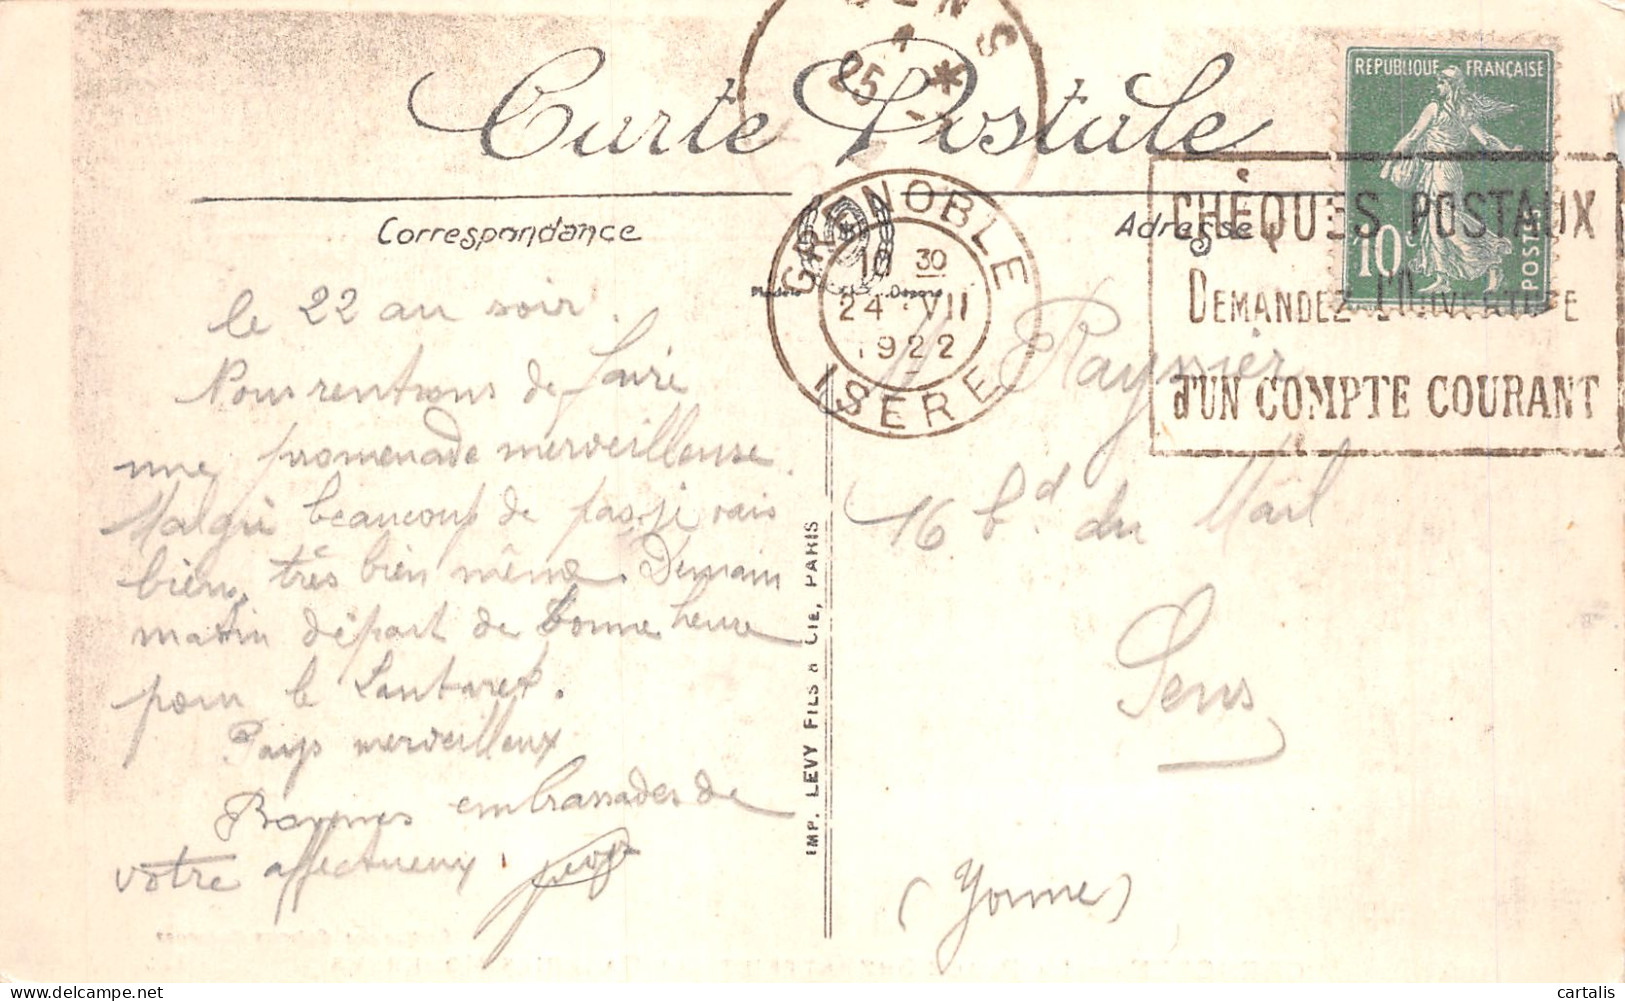 SENS
25
*
Carte Postale
RÉPUBLIQUE FRANÇAISE
10
POSTES
Correspondance
Adresse
GRENOBLE
10 30
24 VII
1922
ISÈRE
CHÈQUES POSTAUX
DEMANDEZ L'OUVERTURE
d'UN COMPTE COURANT
le 22 au soir.
Nous rentrons de faire
une promenade merveilleuse.
Malgré beaucoup de pas, je vais
bien, très bien même. Demain
matin départ de bonne heure
pour le Lautaret.
Pays merveilleux
Bonnes embrassades de
votre affectueux
Raynier
16 bd. du Mail
Sens
(Yonne)
IMP. LEVY FILS & CIE, PARIS
cartalis